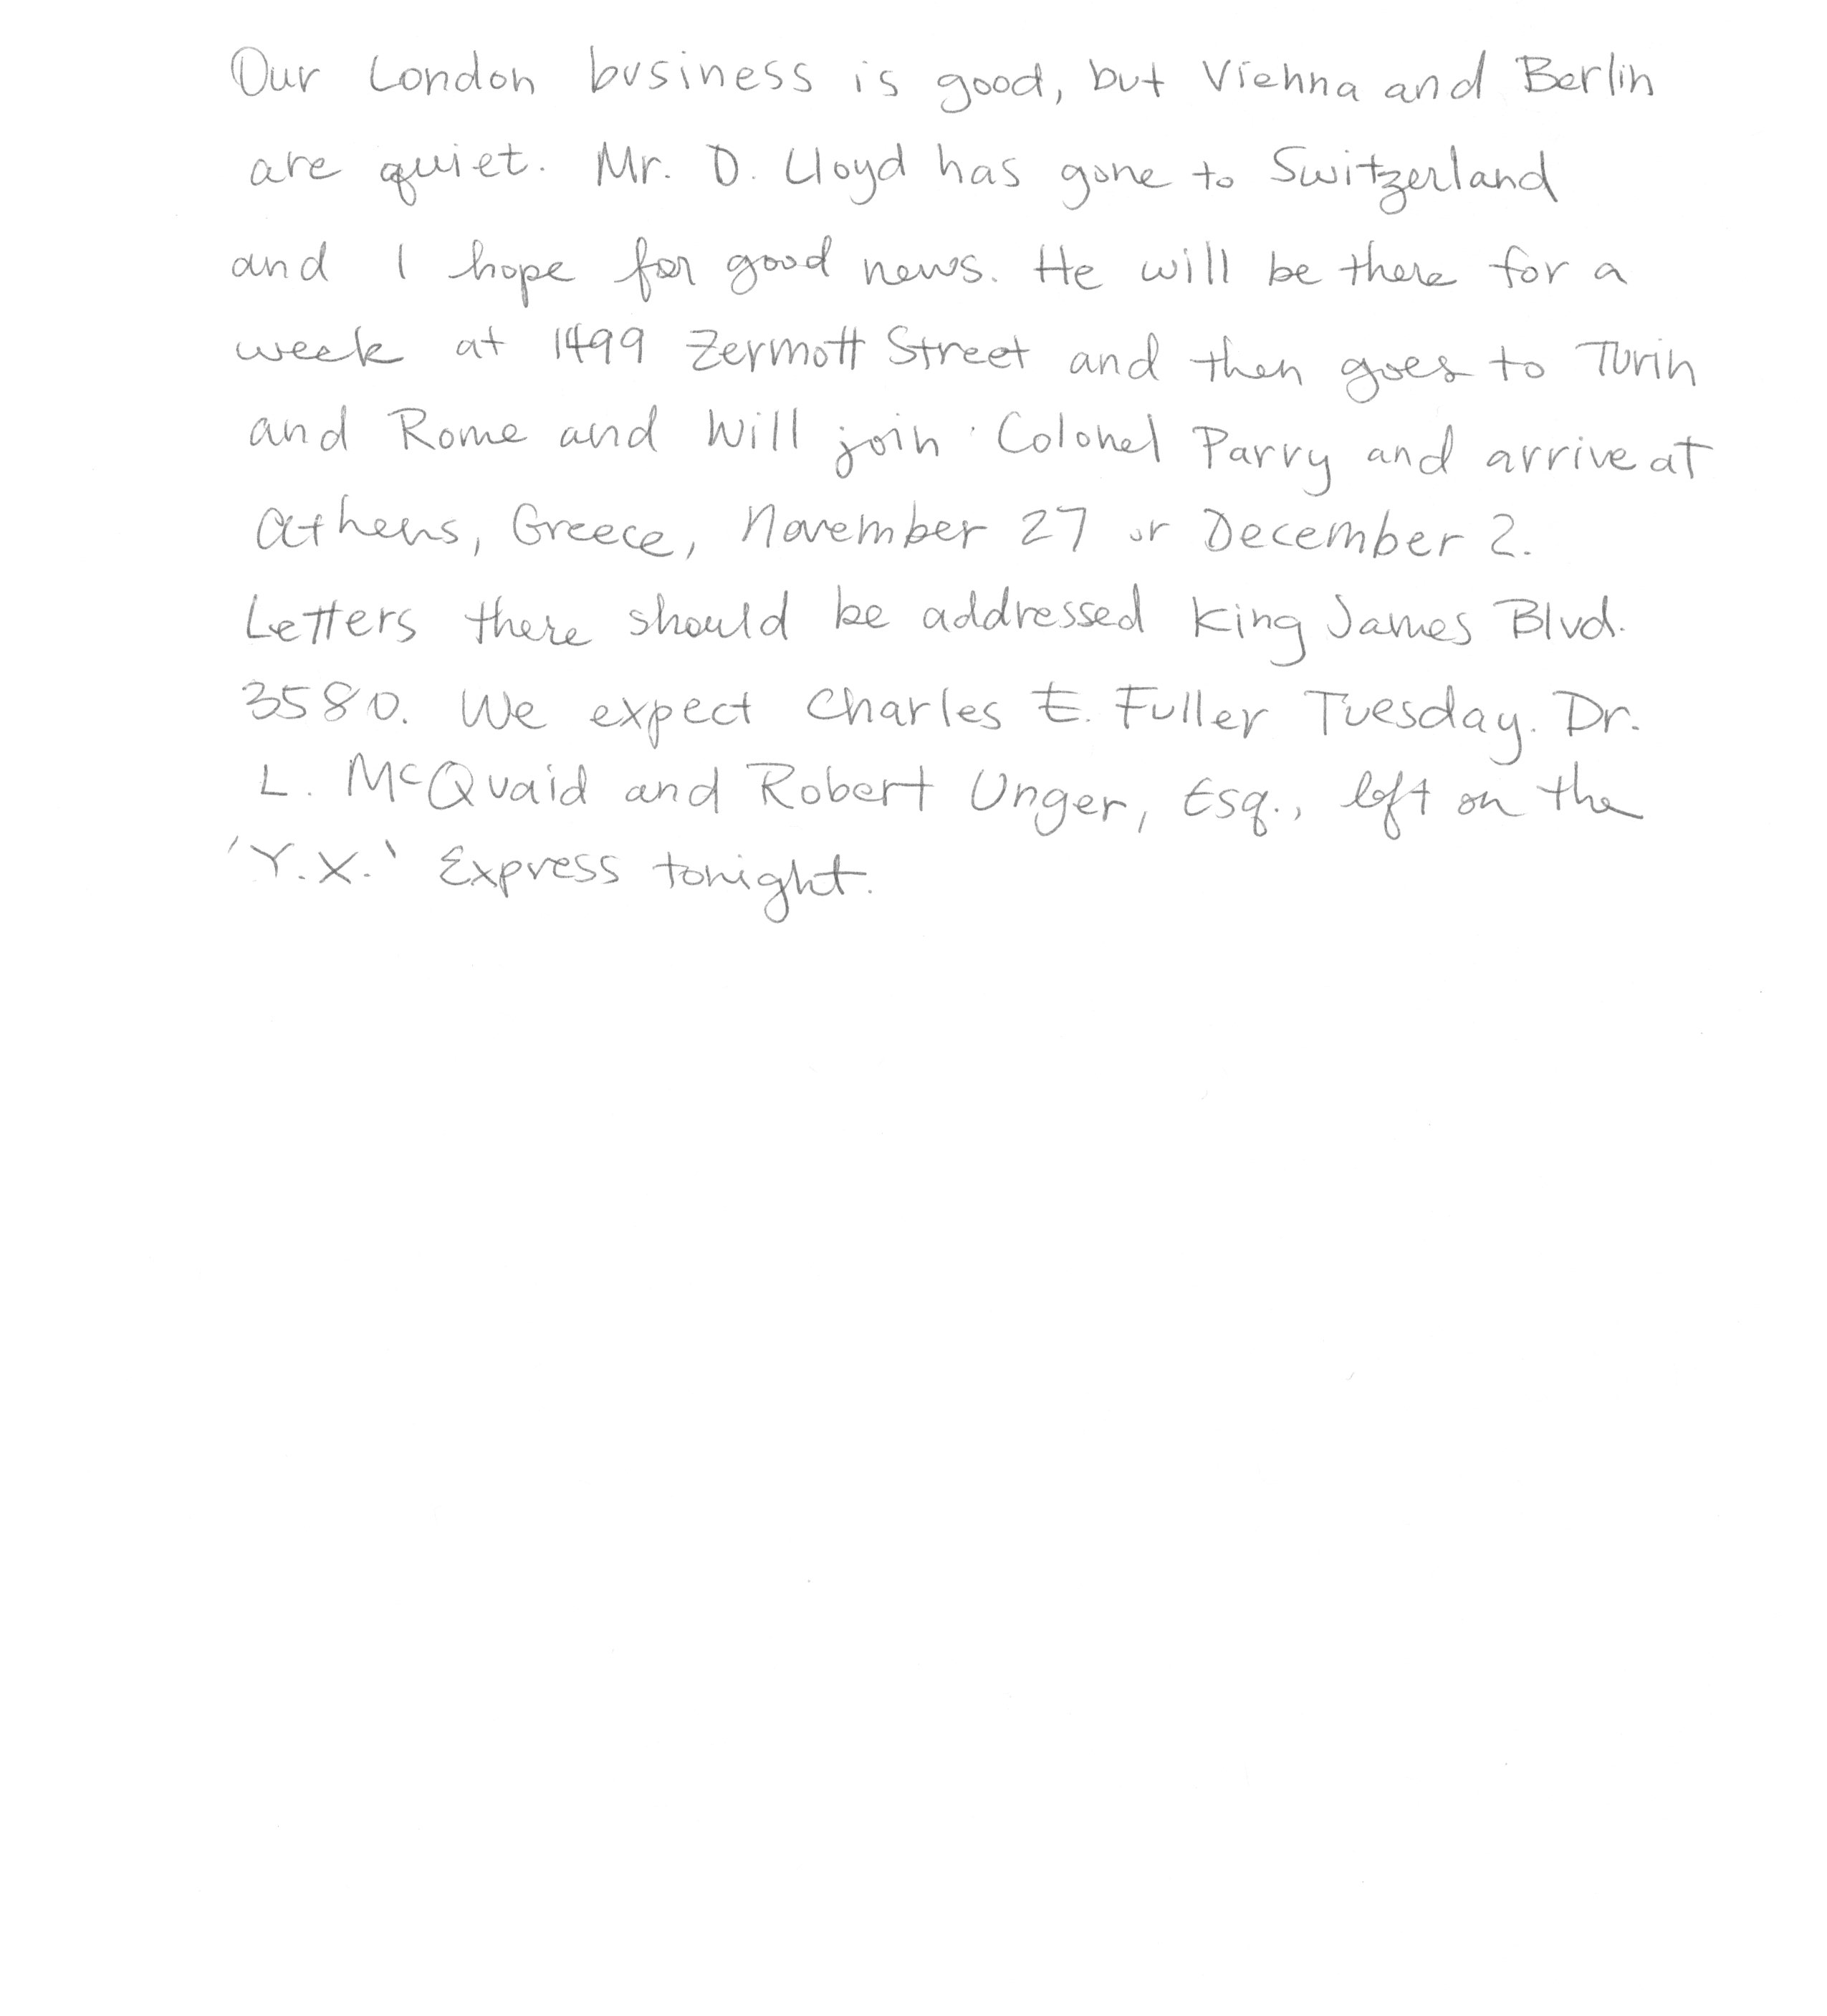 Our London business is good, but Vienna and Berlin
are quiet. Mr. D. Lloyd has gone to Switzerland
and I hope for good news. He will be there for a
week at 1499 Zermott Street and then goes to Turin
and Rome and will join Colonel Parry and arrive at
Athens, Greece, November 27 or December 2.
Letters there should be addressed King James Blvd.
3580. We expect Charles E. Fuller Tuesday. Dr.
L. McQuaid and Robert Unger, Esq., left on the
'Y.X.' Express tonight.